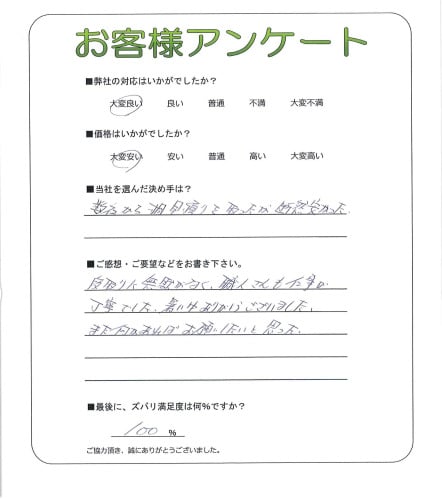 お客様アンケート
■弊社の対応はいかがでしたか?
大変良い 良い 普通 不満 大変不満
■価格はいかがでしたか?
大変安い 安い 普通 高い 大変高い
■当社を選んだ決め手は?
数社から相見積りを取ったが断然安かった
■ご感想・ご要望などをお書き下さい。
段取りに無駄がなく、職人さんも仕事が
丁寧でした、暑い中ありがとうございました、
また何かあればお願いしたいと思った、
■最後に、ズバリ満足度は何%ですか?
100 %
ご協力頂き、誠にありがとうございました。